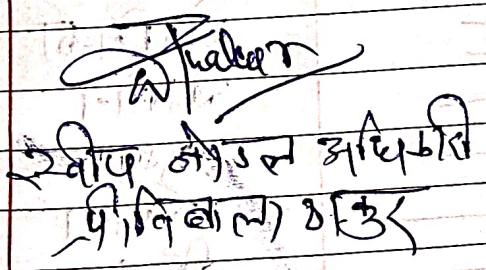 Thakur
स्वीप नोडल अधिकारी
प्रीति बाला ठाकुर